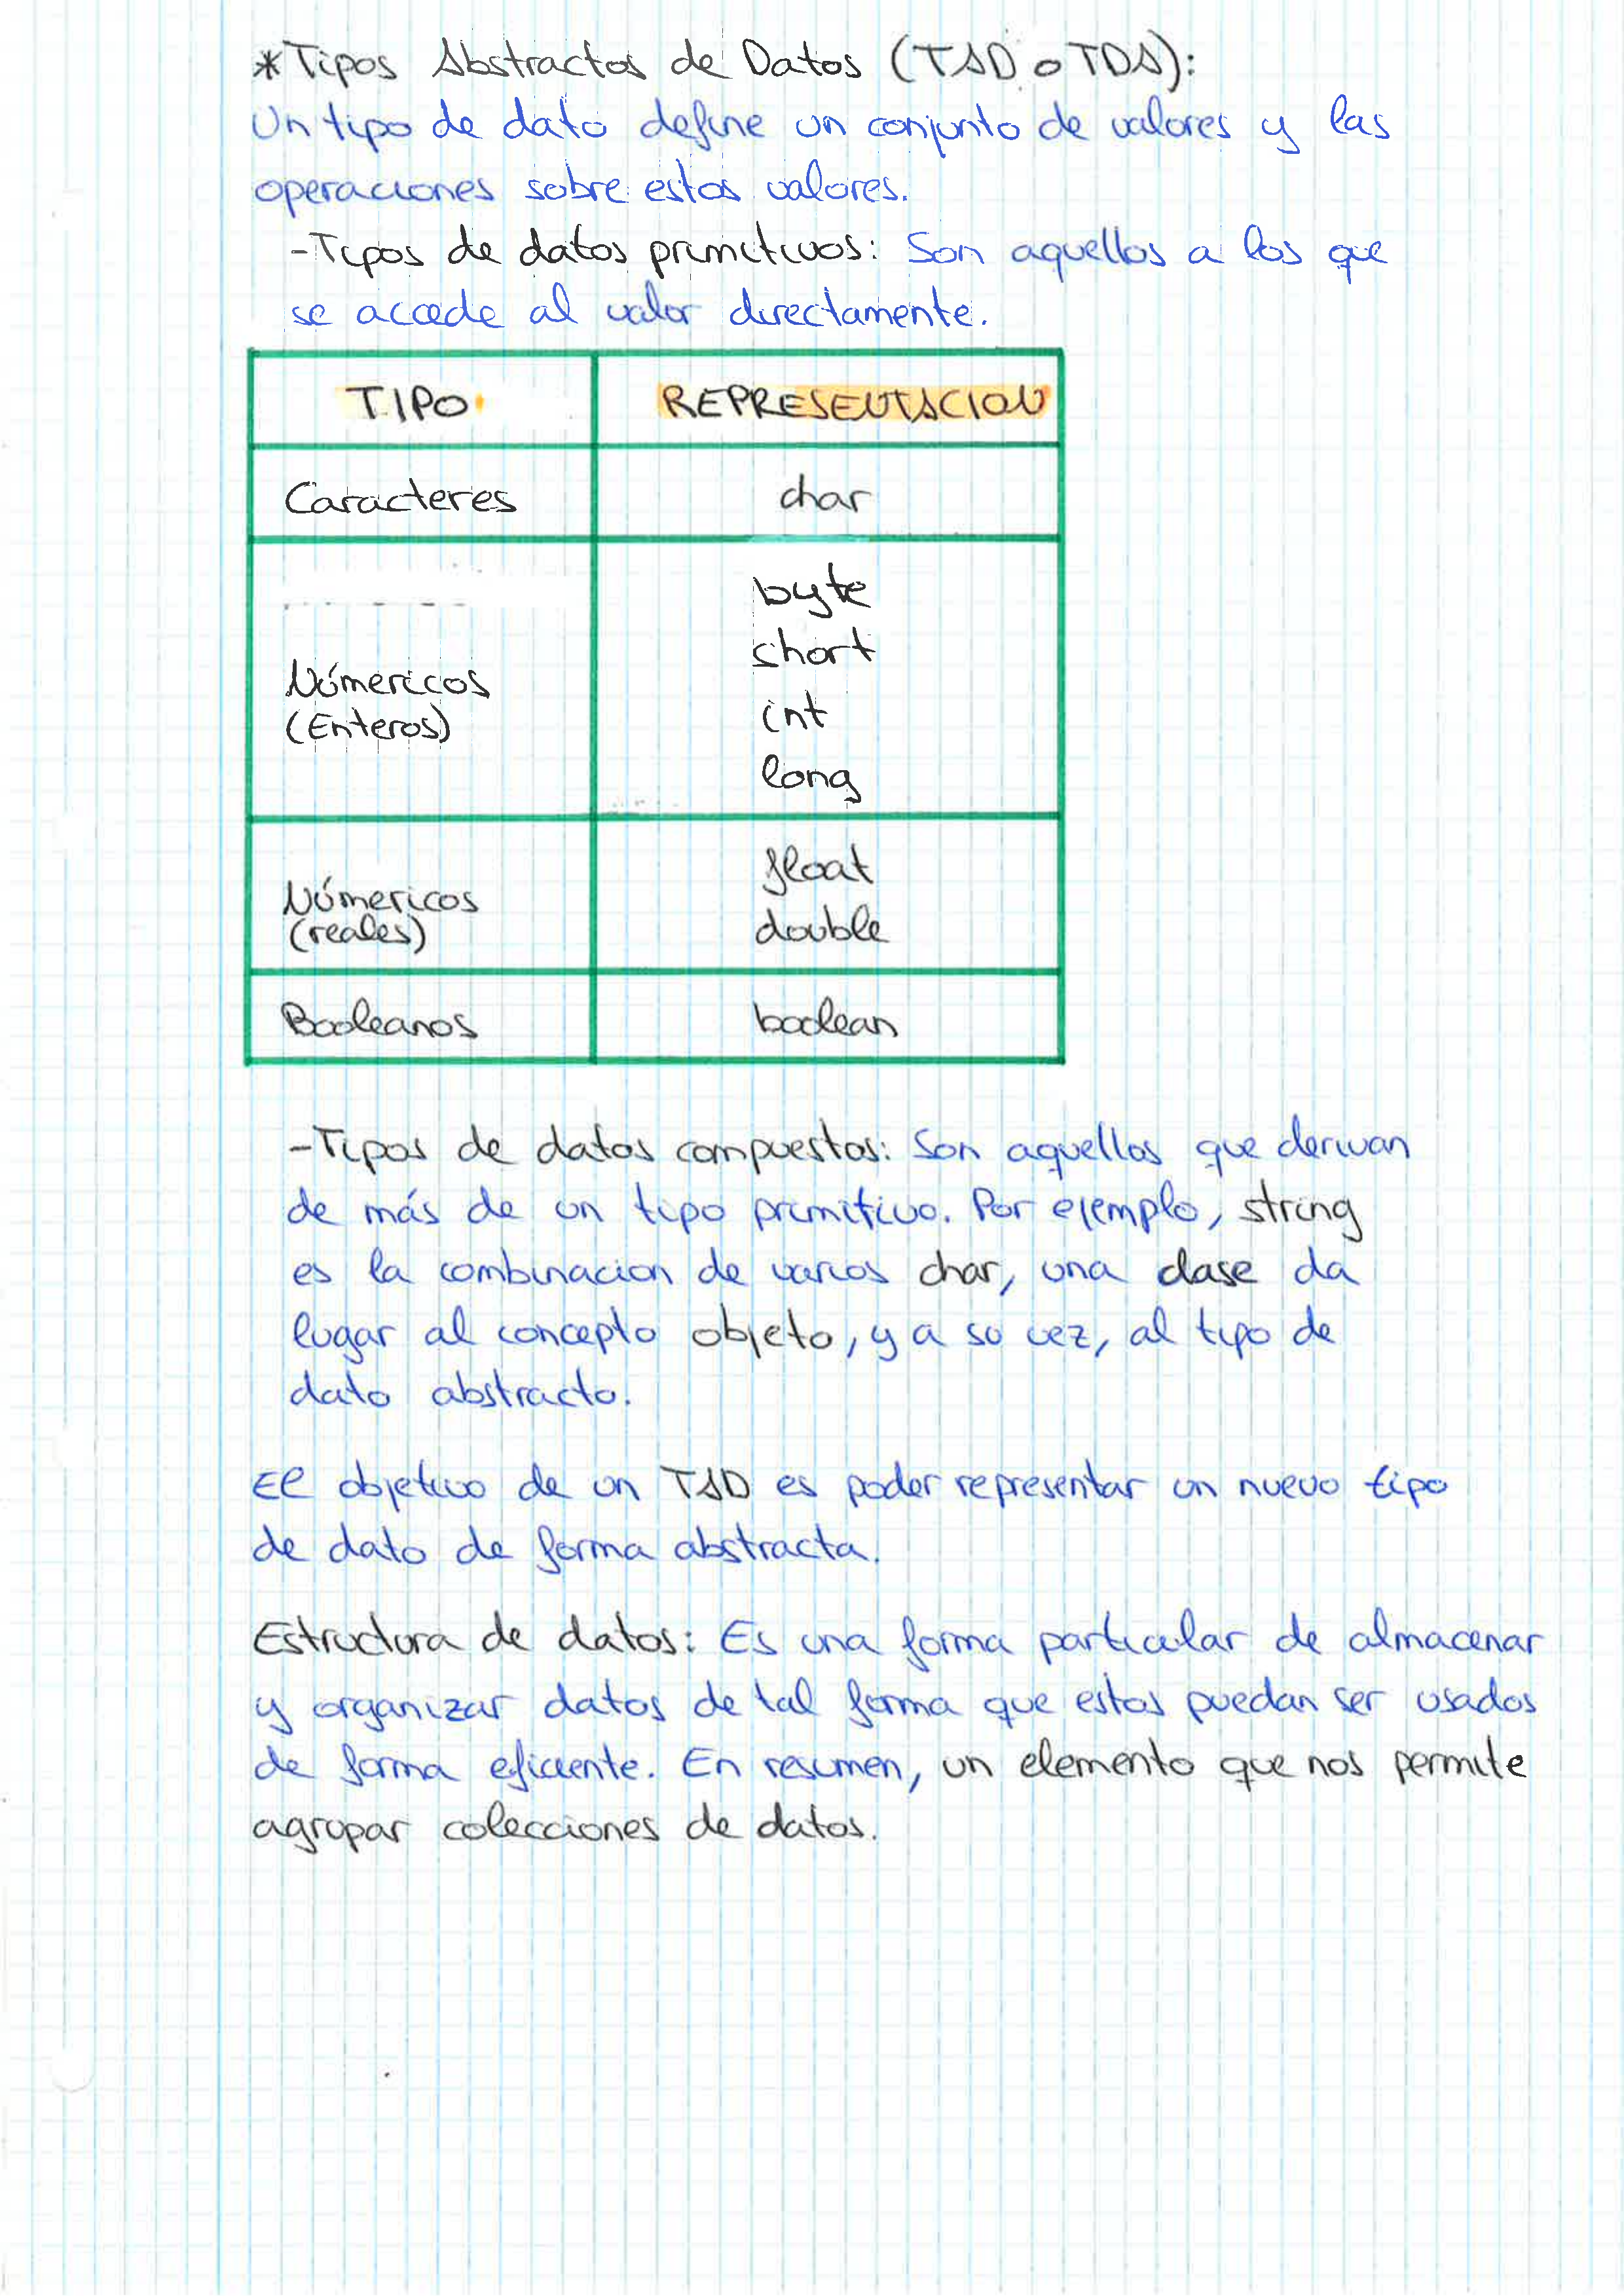 *Tipos Abstractos de Datos (TAD o TDA):
Un tipo de dato define un conjunto de valores y las
operaciones sobre estos valores.
-Tipos de datos primitivos: Son aquellos a los que
se accede al valor directamente.
TIPO REPRESENTACION
Caracteres char
byte
short
Númericos int
(Enteros)
long
float
Númericos double
(reales)
Booleanos boolean
-Tipos de datos compuestos: Son aquellos que derivan
de más de un tipo primitivo. Por ejemplo, string
es la combinacion de varios char, una clase da
lugar al concepto objeto, y a su vez, al tipo de
dato abstracto.
El objetivo de un TAD es poder representar un nuevo tipo
de dato de forma abstracta.
Estructura de datos: Es una forma particular de almacenar
y organizar datos de tal forma que estos puedan ser usados
de forma eficiente. En resumen, un elemento que nos permite
agrupar colecciones de datos.